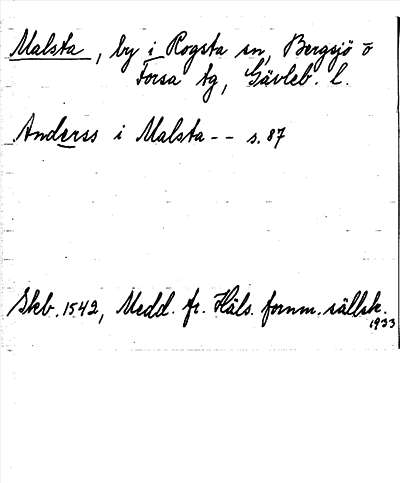 Malsta, by i Rogsta sn, Bergsjö o
Forsa tg, Gävleb. l.
Anderss i Malsta -- s. 87
Skb. 1542, Medd. fr. Häls. fornm. sällsk.
1933